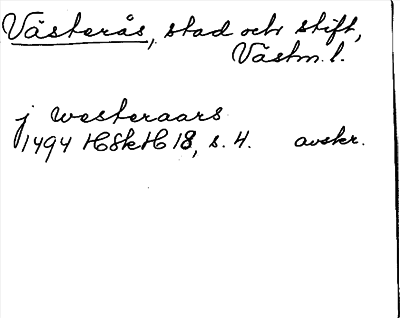 Västerås, stad och stift,
Västm. l.
j westeraars
1494 HSkH 18, s. 4. avskr.